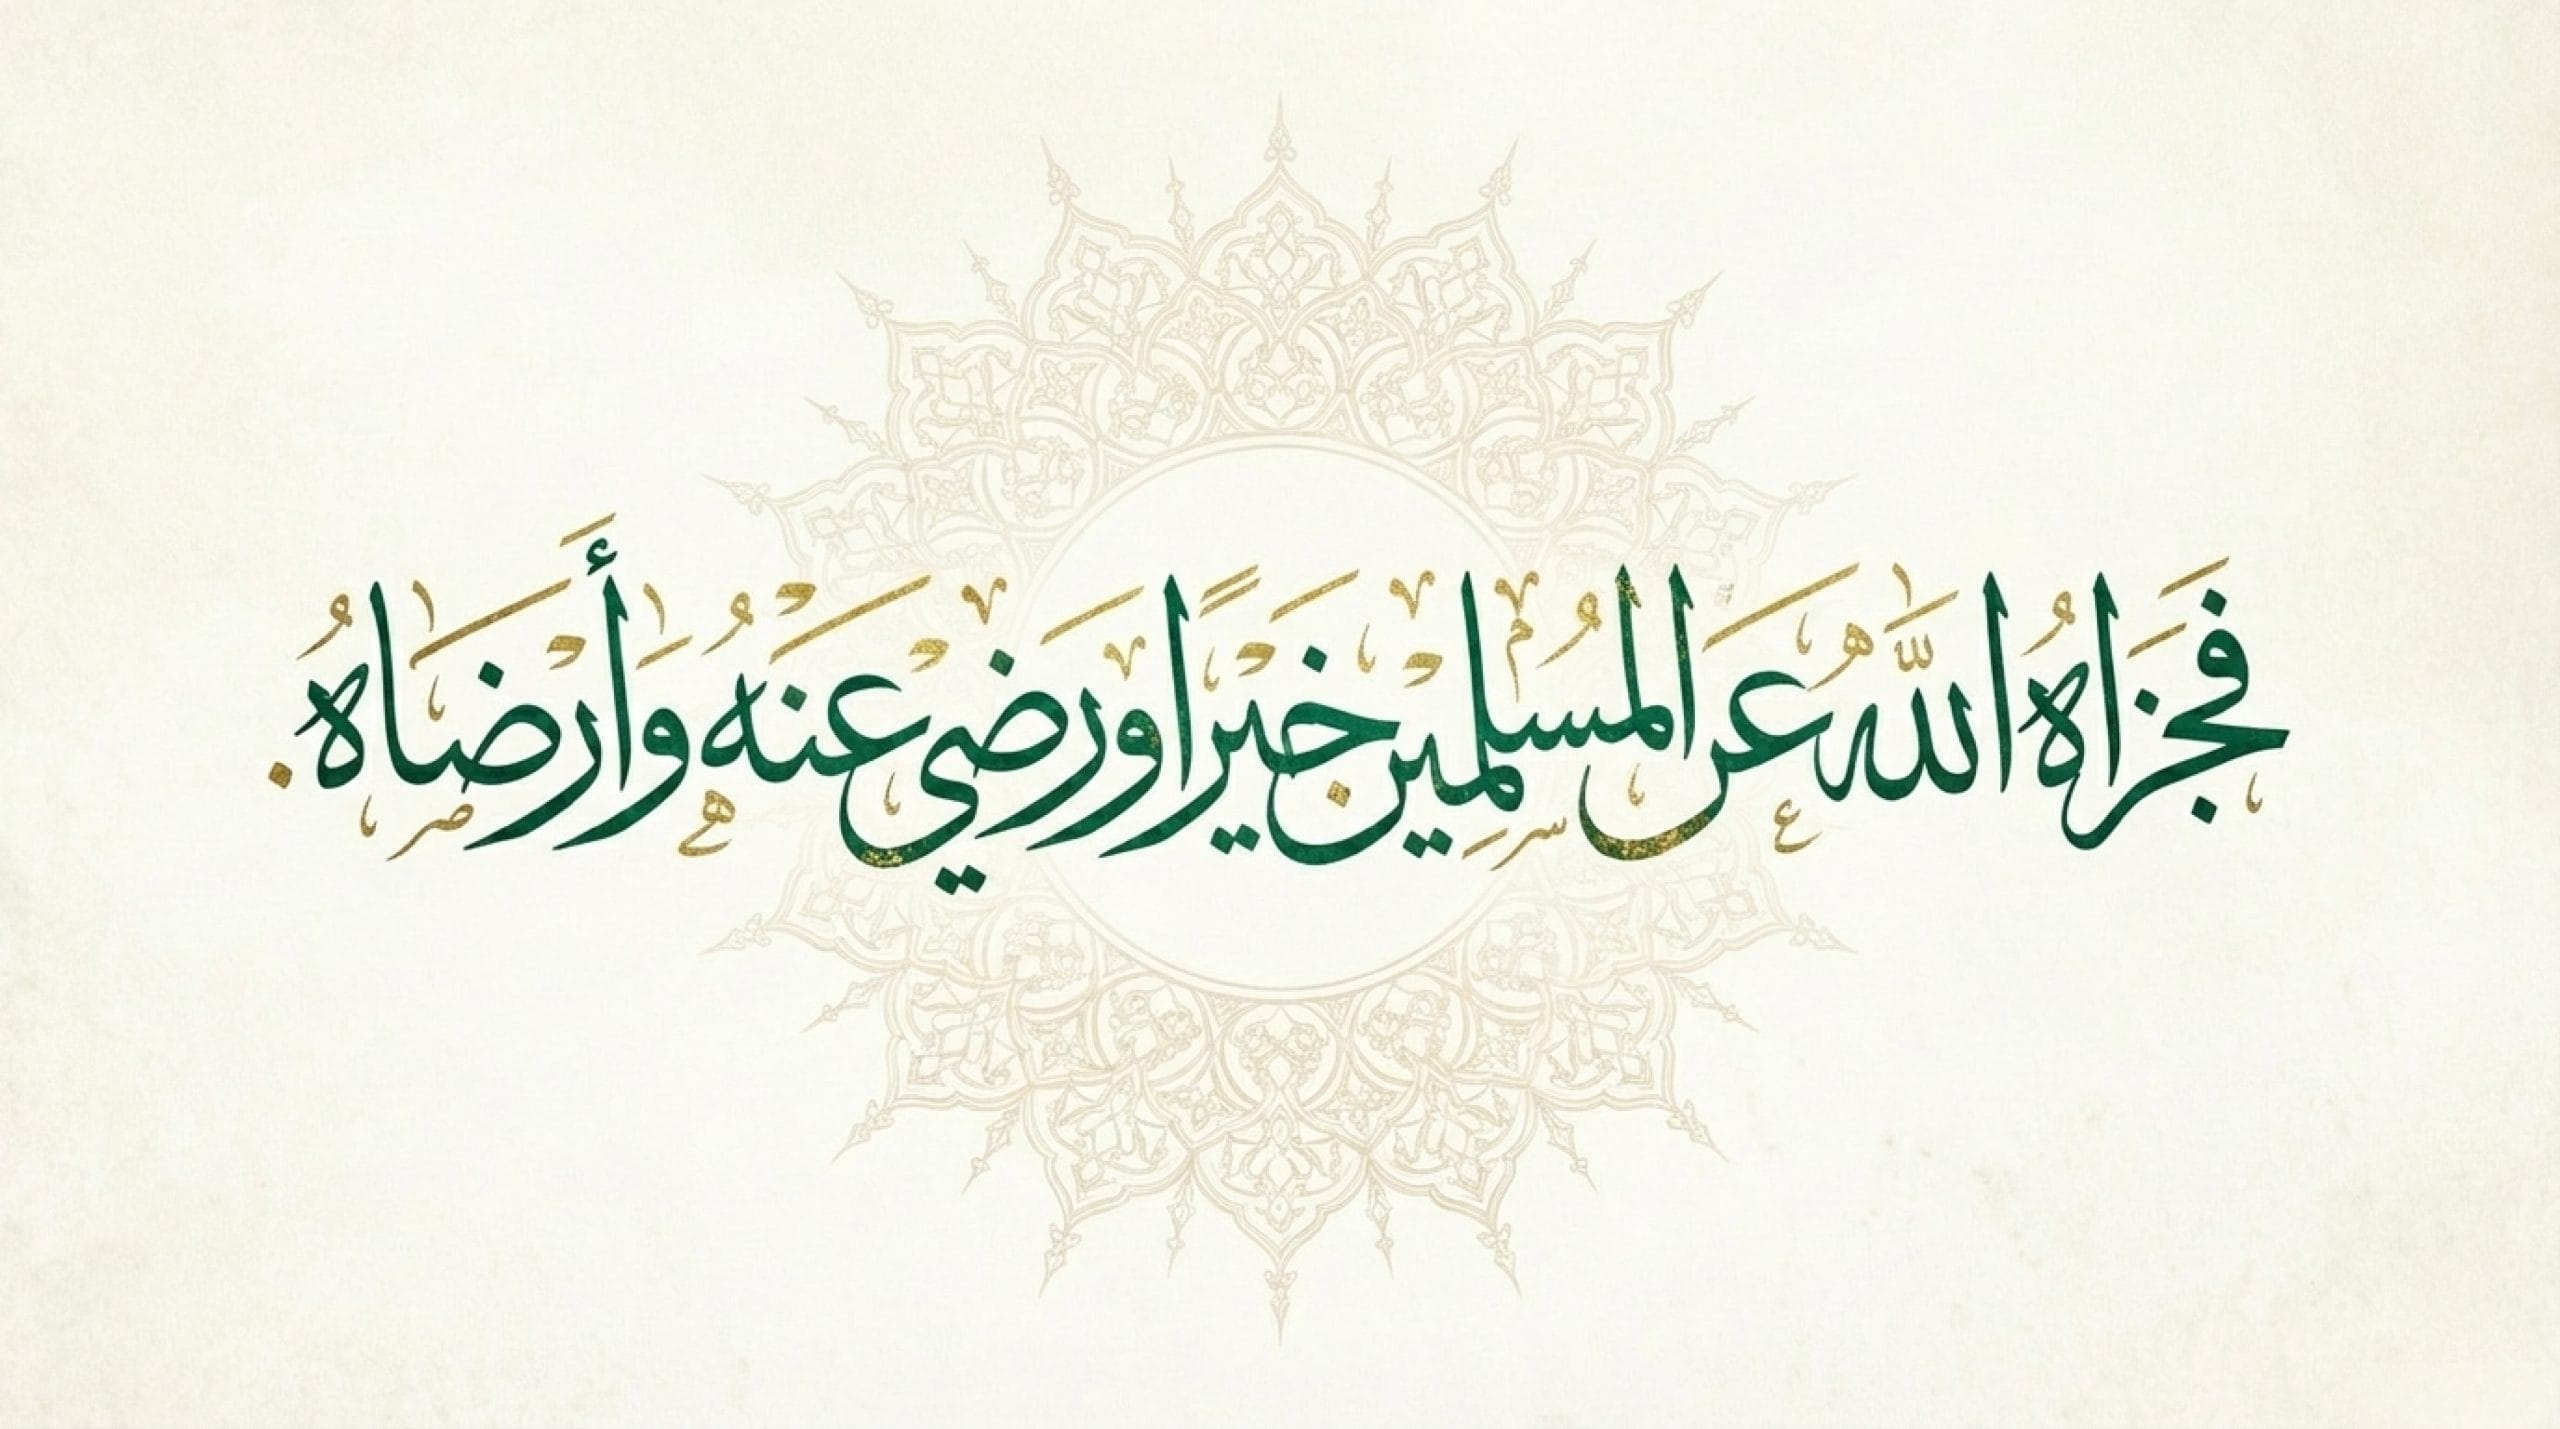 فجزاه الله عن المسلمين خيرًا ورضي عنه وأرضاه.